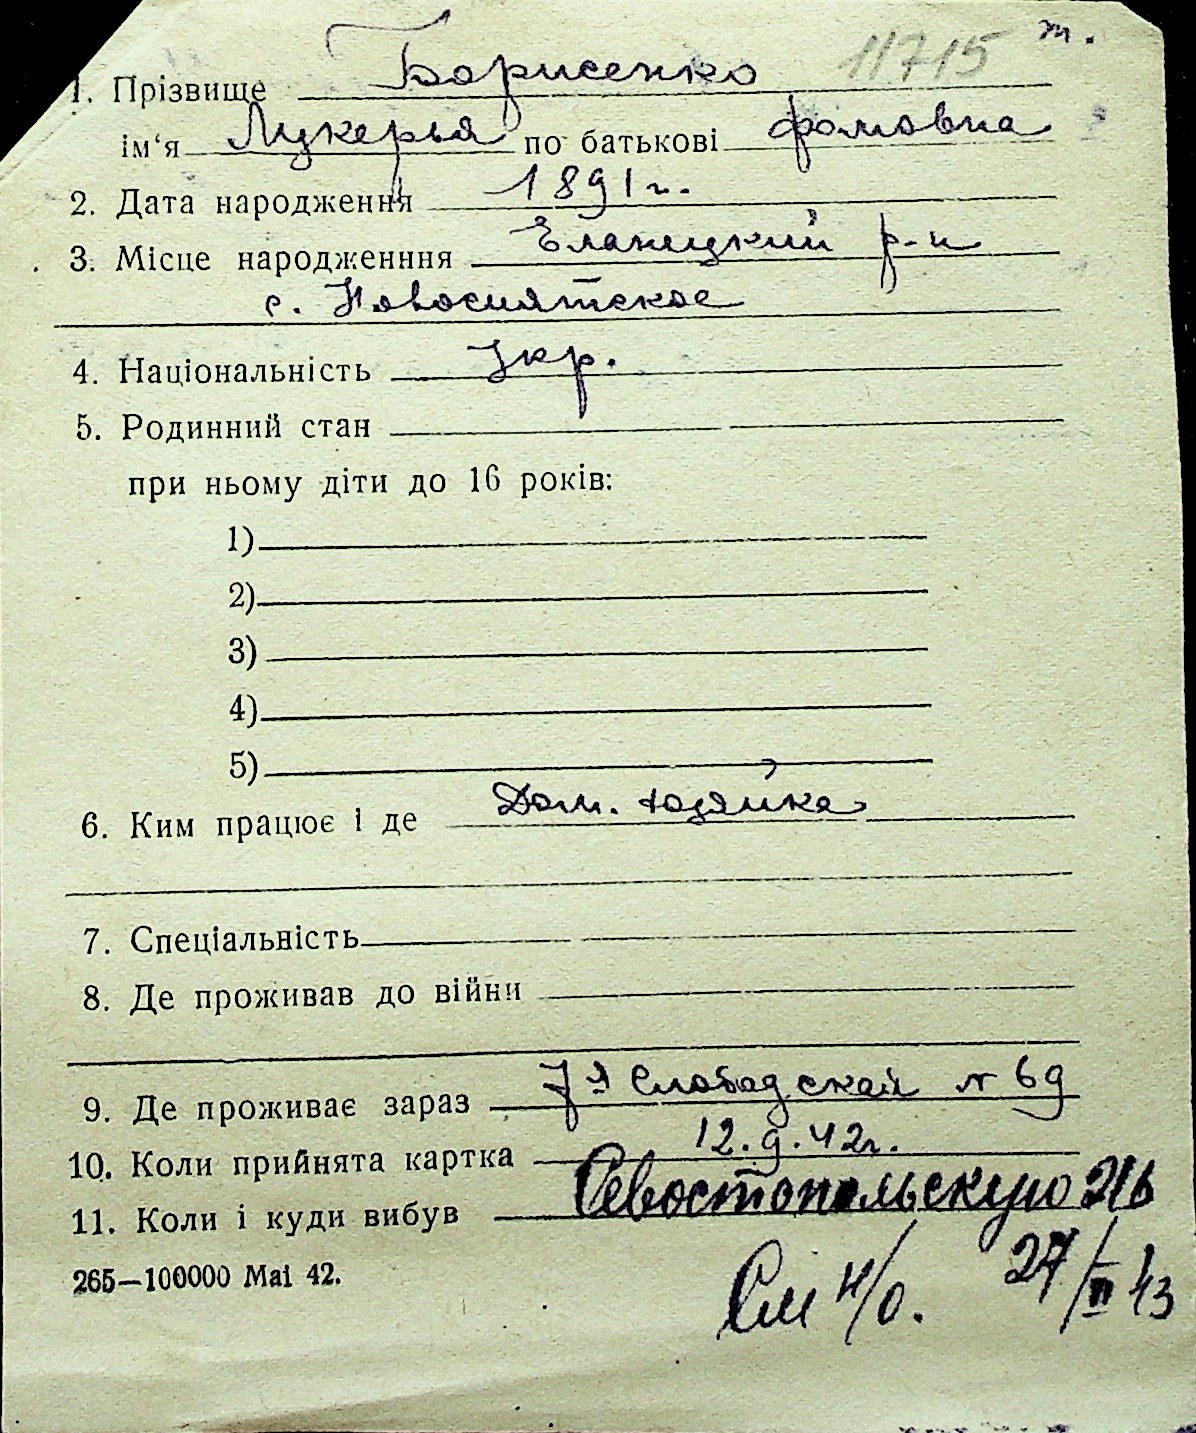 11715 т.
1. Прізвище Борисенко
ім‘я Лукерья по батькові фомовна
2. Дата народження 1891 г.
3. Місце народженння Еланецкий р-н
с. Новосиятское
4. Національність Укр.
5. Родинний стан
при ньому діти до 16 років:
1)
2)
3)
4)
5)
6. Ким працює і де Дом. хозяйка
7. Спеціальність
8. Де проживав до війни
9. Де проживає зараз 7я Слободская № 69
10. Коли прийнята картка 12.9.42г.
11. Коли і куди вибув Севостопольскую 21б
265—100000 Маі 42.
См н/о. 27/II 43